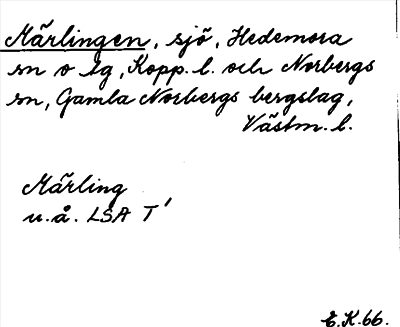 Märlingen, sjö, Hedemora
sn o tg, Kopp. l. och Norbergs
sn, Gamla Norbergs bergslag,
Västm. l.
Märling
u.å. LSA T'
E.K. 66.